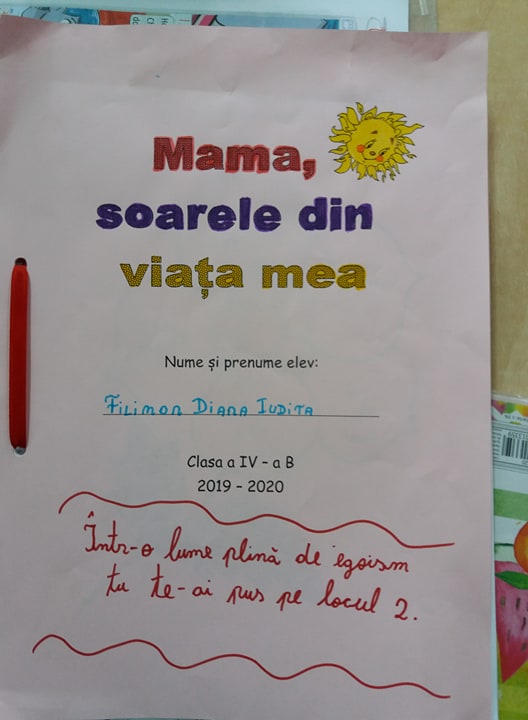 Mama,
soarele din
viața mea
Nume și prenume elev:
Filimon Diana Iudita
Clasa a IV – a B
2019 – 2020
Într-o lume plină de egoism
tu te-ai pus pe locul 2.